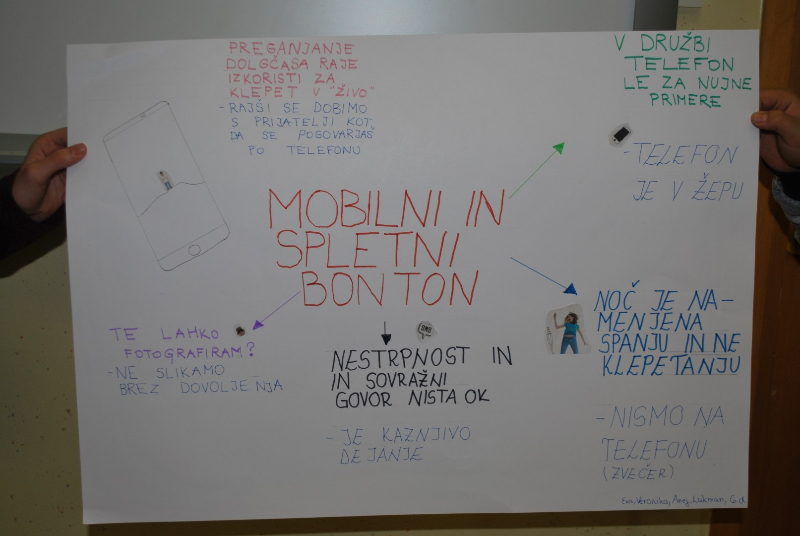 PREGANJANJE
DOLGČASA RAJE
IZKORISTI ZA
KLEPET V "ŽIVO"
- RAJŠI SE DOBIMO
S PRIJATELJI KOT,
DA SE POGOVARJAŠ
PO TELEFONU
V DRUŽBI
TELEFON
LE ZA NUJNE
PRIMERE
- TELEFON
JE V ŽEPU
MOBILNI IN
SPLETNI
BONTON
TE LAHKO
FOTOGRAFIRAM?
- NE SLIKAMO
BREZ DOVOLJENJA
NESTRPNOST IN
IN SOVRAŽNI
GOVOR NISTA OK
- JE KAZNJIVO
DEJANJE
NOČ JE NA-
MENJENA
SPANJU IN NE
KLEPETANJU
- NISMO NA
TELEFONU
(ZVEČER)
Eva, Veronika, Anej, Lukman, 6.d